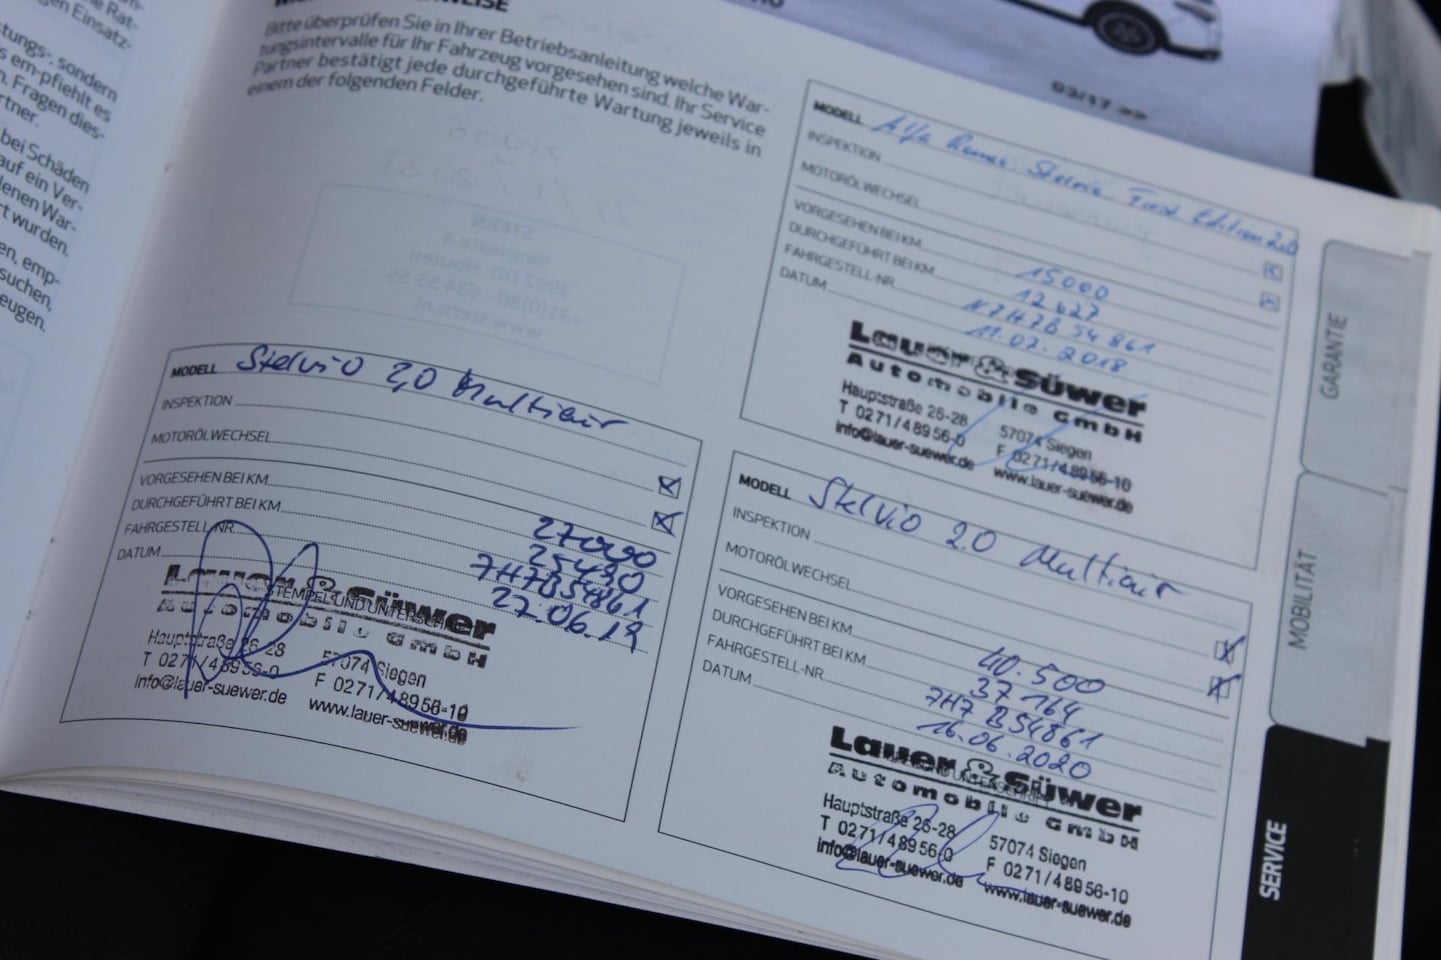 ne Rat-
gen Einsatz-
stungs-, sondern
s em-pfiehlt es
n. Fragen dies-
rtner.
bei Schäden
auf ein Ver-
denen War-
rt wurden.
en, emp-
suchen,
eugen.
Bitte überprüfen Sie in Ihrer Betriebsanleitung welche War-
tungsintervalle für Ihr Fahrzeug vorgesehen sind. Ihr Service
Partner bestätigt jede durchgeführte Wartung jeweils in
einem der folgenden Felder.
03/17
MODELL Alfa Romeo Stelvio First Edition 2.0
INSPEKTION
MOTORÖLWECHSEL
VORGESEHEN BEI KM 15000
DURCHGEFÜHRT BEI KM 12627
FAHRGESTELL-NR. N7H7B54861
DATUM 11.07.2018
Lauer & Süwer
Automobile GmbH
Hauptstraße 26-28 57074 Siegen
T 0271/48956-0 F 0271/48956-10
info@lauer-suewer.de www.lauer-suewer.de
MODELL Stelvio 2,0 Multiair
INSPEKTION
MOTORÖLWECHSEL
VORGESEHEN BEI KM 27000
DURCHGEFÜHRT BEI KM 25430
FAHRGESTELL-NR. 7H7B54861
DATUM 27.06.19
STEMPEL UND UNTERSCHRIFT
Lauer & Süwer
Automobile GmbH
Hauptstraße 26-28 57074 Siegen
T 0271/48956-0 F 0271/48956-10
info@lauer-suewer.de www.lauer-suewer.de
MODELL Stelvio 2.0 Multiair
INSPEKTION
MOTORÖLWECHSEL
VORGESEHEN BEI KM 40.500
DURCHGEFÜHRT BEI KM 37164
FAHRGESTELL-NR. 7H7B54861
DATUM 16.06.2020
Lauer & Süwer
Automobile GmbH
Hauptstraße 26-28 57074 Siegen
T 0271/48956-0 F 0271/48956-10
info@lauer-suewer.de www.lauer-suewer.de
GARANTIE
MOBILITÄT
SERVICE